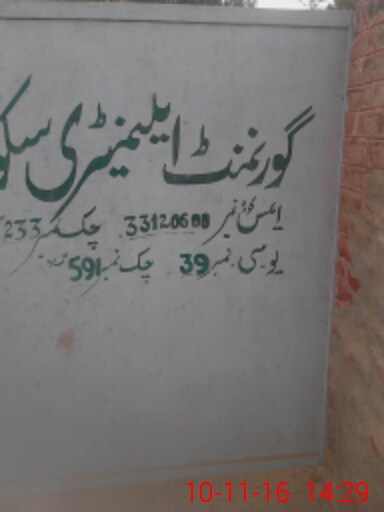 گورنمنٹ ایلیمنٹری سکو
ایمس کوڈ نمبر 33120608 چک نمبر 233
یو سی نمبر 39 چک نمبر 591
10-11-16 14:29